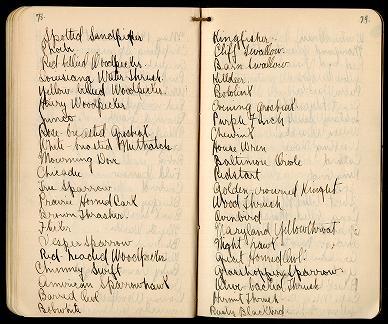 78.
Spotted Sandpiper
Phoebe
Red bellied Woodpecker
Louisiana Water Thrush
Yellow billed Woodpecker
Hairy Woodpecker
Junco
Rose-breasted Grosbeak
White-breasted Nuthatch
Mourning Dove
Chicadee
Tree Sparrow
Prairie Horned Lark
Brown Thrasher
Flicker
Vesper Sparrow
Red headed Woodpecker
Chimney Swift
American Sparrowhawk
Barred Owl
Bobwhite
79.
Kingfisher
Cliff Swallow
Barn Swallow
Killdeer
Bobolink
Evening Grosbeak
Purple Finch
Chewink
House Wren
Baltimore Oriole
Redstart
Golden-crowned Kinglet
Wood Thrush
Ovenbird
Maryland Yellowthroat
Night hawk
Great Horned Owl
Grasshopper Sparrow
Olive-backed Thrush
Hermit Thrush
Rusty Blackbird